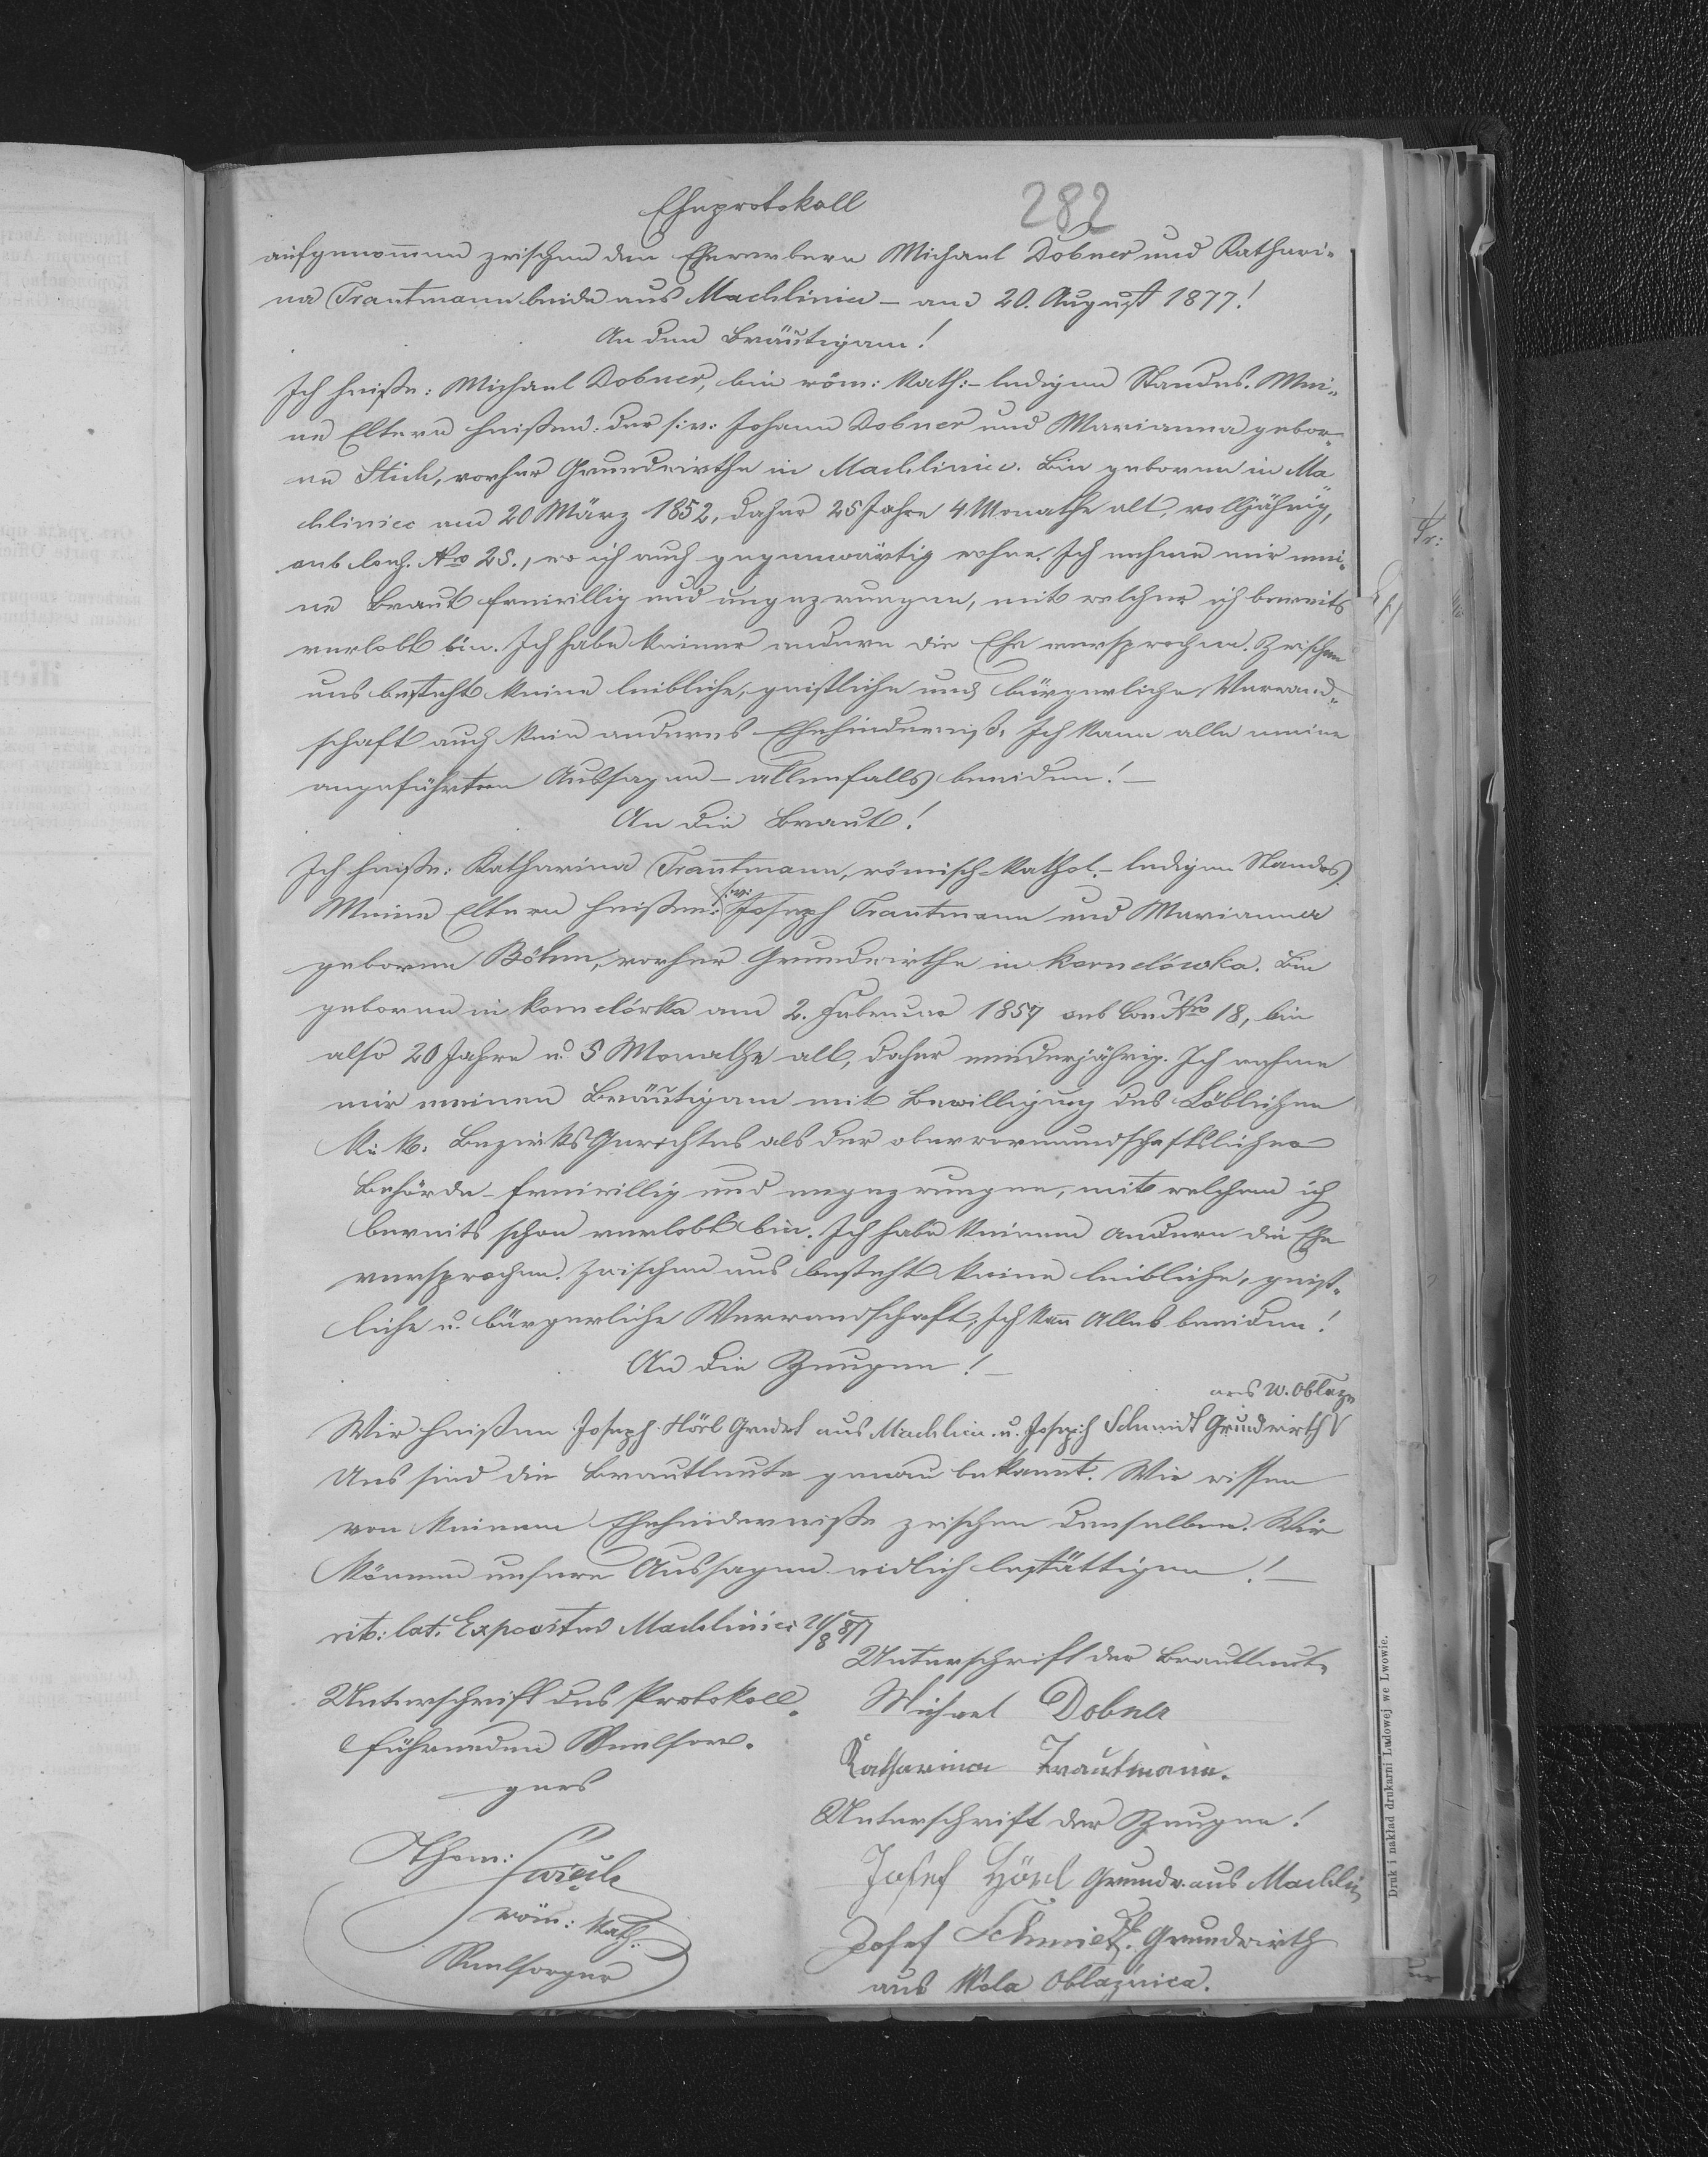 282
Eheprotokoll
aufgenom̄en zwischen den Ehewerbern Michael Dobner und Kathari-
na Trautmann beide aus Machliniec – am 20. August 1877!
An den Bräutigam!
Ich heiße: Michael Dobner, bin röm: kath:– ledigen Standes. Mei-
ne Eltern heißen: der s: v: Johann Dobner und Marianna gebor-
ne Stich, vorher Grundwirthe in Machliniec. Bin geboren in Ma-
chliniec am 20 März 1852, daher 25 Jahre 4 Monathe alt, volljährig,
sub Nro 25., wo ich auch gegenwärtig wohne. Ich nehme mir mei-
ne Braut freiwillig und ungezwungen, mit welcher ich bereits
verlobt bin. Ich habe keiner andern die Ehe versprochen. Zwischen
uns besteht keine leibliche, geistliche und bürgerliche Verwand-
schaft auch kein anderes Ehehinderniß. Ich kann alle meine
angeführten Aussagen – allenfalls beeiden! –
An die Braut!
Ich heiße: Katharina Trautmann, römisch-kathol.– ledigen Standes.
Meine Eltern heißen: s: v: Joseph Trautmann und Marianna
geborne Böhm, vorher Grundwirthe in Kornelówka. Bin
geboren in Kornelówka am 2. Februar 1857 sub Con Nro 18, bin
also 20 Jahre u. 5 Monathe alt, daher minderjährig. Ich nehme
mir meinen Bräutigam mit Bewilligung des Löblichen
k: k: Bezirks Gerichtes als der obervormundschaftlichen
Behörde – freiwillig und ungezwungen, mit welchem ich
bereits schon verlobt bin. Ich habe keinem andern die Ehe
versprochen. Zwischen uns besteht keine leibliche, geist-
liche u. bürgerliche Verwandschaft, Ich kan̄ Alles beeiden!
An die Zeugen! –
aus W. Oblazn
Wir heißen Joseph Hörl Grndrt aus Machlin. u. Joseph Schmidt Grundwirth
Uns sind die Brautleute genau bekannt. Wir wissen
von keinem Ehehinderniße zwischen denselben. Wir
können unsere Aussagen eidlich bestättigen! –
rit: lat. Expositus Machliniec 20/8 877
Unterschrift der Brautleute
Unterschrift des Protokoll-
führenden Seelsor-
gers
Michael Dobner
Katharina Trautmann.
Unterschrift der Zeugen!
Thom:
röm: kath:
Seelsorger
Josef Hörl Grundw. aus Machli
Josef Schmidt. Grundwirth
aus Wola Oblaźnica.
Druk i nakład drukarni Ludowej we Lwowie.